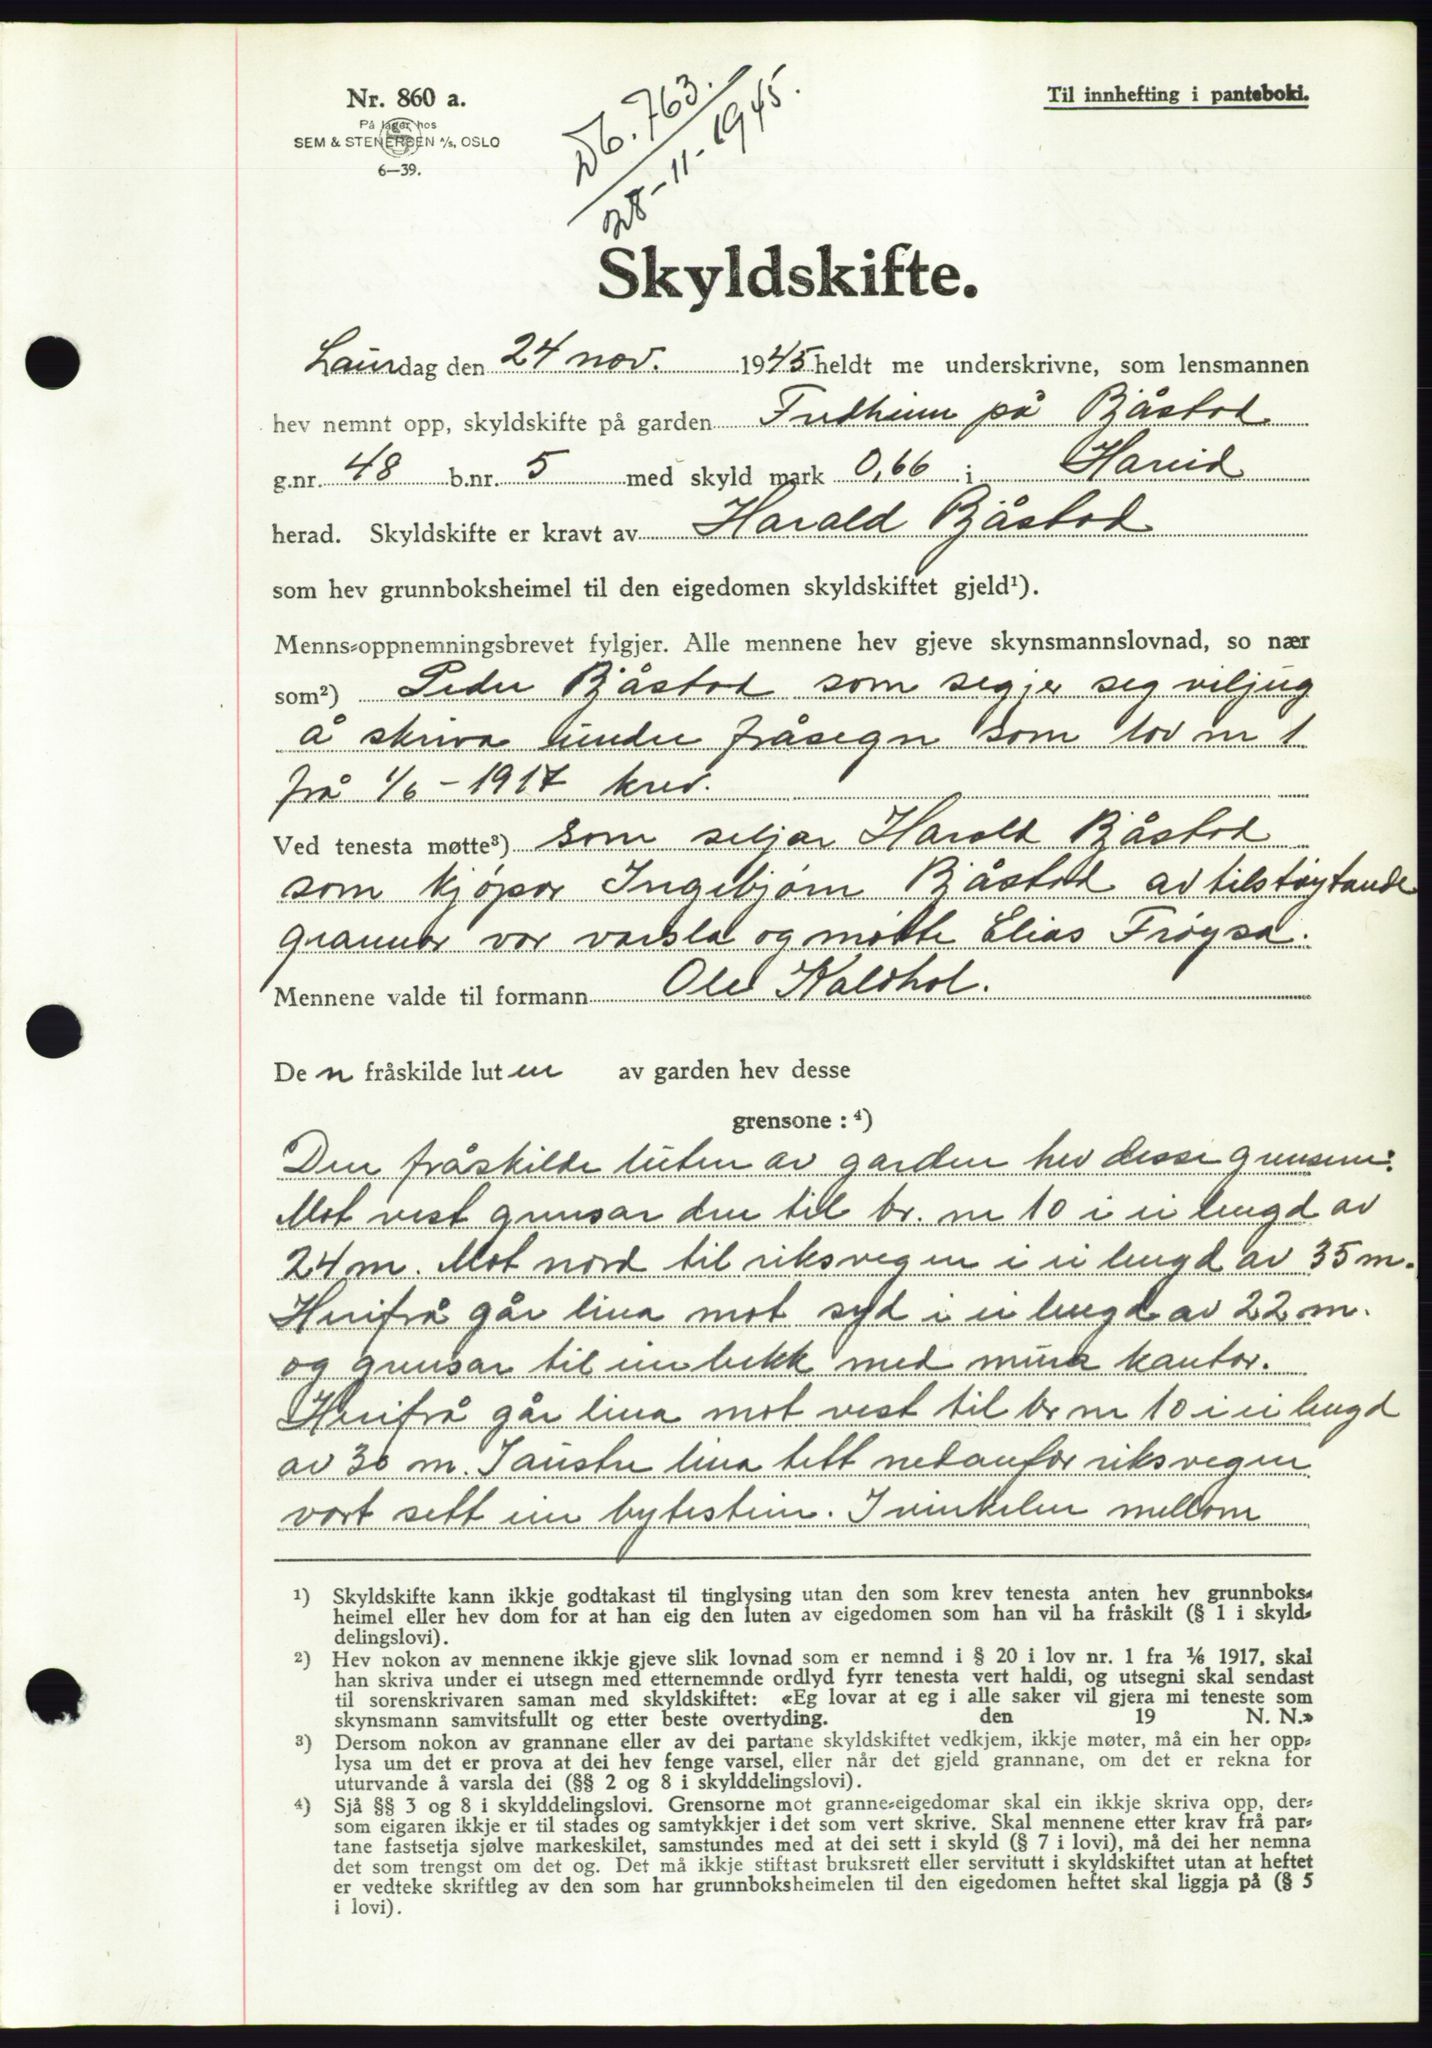 Nr. 860 a.
På lager hos
SEM & STENERSEN A/S, OSLO
6—39.
Db. 763.
28-11-1945.
Til innhefting i panteboki.
Skyldskifte.
Laurdag den 24 nov. 1945 heldt me underskrivne, som lensmannen
hev nemnt opp, skyldskifte på garden Fredheim på Bjåstad
g.nr. 48 b.nr. 5 med skyld mark 0,66 i Hareid
herad. Skyldskifte er kravt av Harald Bjåstad
som hev grunnboksheimel til den eigedomen skyldskiftet gjeld¹).
Menns-oppnemningsbrevet fylgjer. Alle mennene hev gjeve skynsmannslovnad, so nær
som²) Peder Bjåstad som segjer seg viljug
å skriva under fråsegn som lov nr 1
frå 1/6 - 1917 krev.
Ved tenesta møtte³) som seljar Harald Bjåstad
som kjøpar Ingebjørn Bjåstad av tilstøytande
grannar var varsla og møtte Elias Frøysa.
Mennene valde til formann Ole Kaldhol.
De n fråskilde lut en av garden hev desse
grensone : ⁴)
Den fråskilde luten av garden hev desse grensene:
Mot vest grensar den til br. nr 10 i ei lengd av
24 m. Mot nord til riksvegen i ei lengd av 35 m.
Herifrå går lina mot syd i ei lengd av 22 m.
og grensar til ein bekk med mura kantar.
Herifrå går lina mot vest til br nr 10 i ei lengd
av 30 m. I austre lina tett nedanfor riksvegen
vart sett ein bytestein. I vinkelen mellom
¹) Skyldskifte kann ikkje godtakast til tinglysing utan den som krev tenesta anten hev grunnboks-
heimel eller hev dom for at han eig den luten av eigedomen som han vil ha fråskilt (§ 1 i skyld-
delingslovi).
²) Hev nokon av mennene ikkje gjeve slik lovnad som er nemnd i § 20 i lov nr. 1 fra 1/6 1917, skal
han skriva under ei utsegn med etternemnde ordlyd fyrr tenesta vert haldi, og utsegni skal sendast
til sorenskrivaren saman med skyldskiftet: «Eg lovar at eg i alle saker vil gjera mi teneste som
skynsmann samvitsfullt og etter beste overtyding. den 19 N. N.»
³) Dersom nokon av grannane eller av dei partane skyldskiftet vedkjem, ikkje møter, må ein her opp-
lysa um det er prova at dei hev fenge varsel, eller når det gjeld grannane, om det er rekna for
uturvande å varsla dei (§§ 2 og 8 i skylddelingslovi).
⁴) Sjå §§ 3 og 8 i skylddelingslovi. Grensorne mot granne-eigedomar skal ein ikkje skriva opp, der-
som eigaren ikkje er til stades og samtykkjer i det som vert skrive. Skal mennene etter krav frå par-
tane fastsetja sjølve markeskilet, samstundes med at dei sett i skyld (§ 7 i lovi), må dei her nemna
det som trengst om det og. Det må ikkje stiftast bruksrett eller servitutt i skyldskiftet utan at heftet
er vedteke skriftleg av den som har grunnboksheimelen til den eigedomen heftet skal liggja på (§ 5
i lovi).